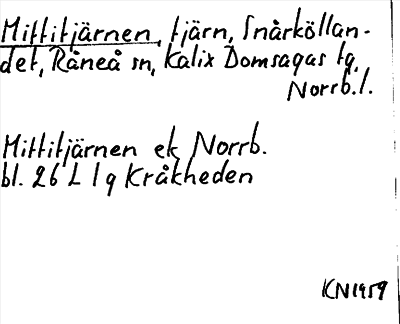 Mittitjärnen, tjärn, Snårköllan-
det, Råneå sn, Kalix Domsagas tg,
Norrb.l.
Mittitjärnen ek Norrb.
bl. 26 L 1 g Kråkheden
KN 1959